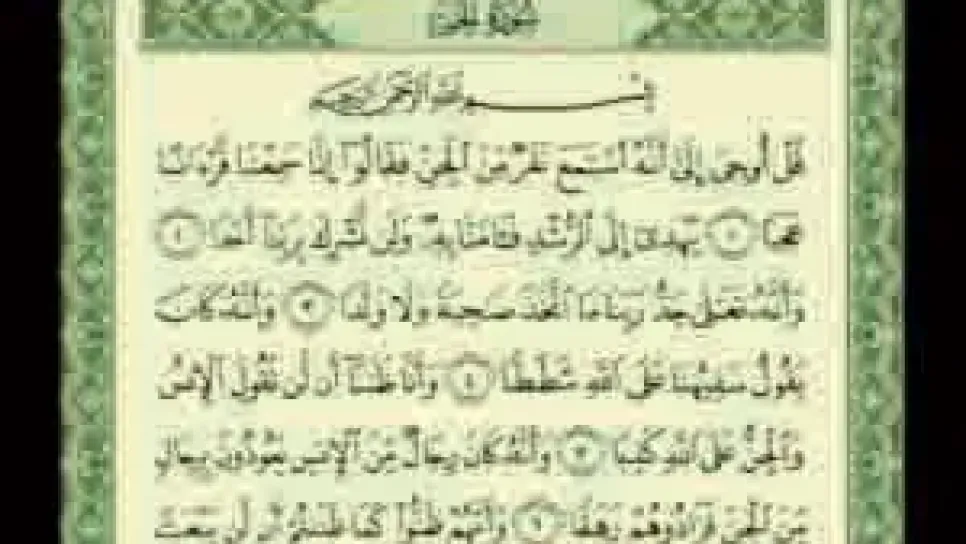 سُورَةُ الجن
بِسْمِ اللَّهِ الرَّحْمَٰنِ الرَّحِيمِ
قُلْ أُوحِيَ إِلَيَّ أَنَّهُ اسْتَمَعَ نَفَرٌ مِّنَ الْجِنِّ فَقَالُوا إِنَّا سَمِعْنَا قُرْءَانًا
عَجَبًا ١ يَهْدِي إِلَى الرُّشْدِ فَـَٔامَنَّا بِهِ وَلَن نُّشْرِكَ بِرَبِّنَا أَحَدًا ٢
وَأَنَّهُ تَعَٰلَىٰ جَدُّ رَبِّنَا مَا اتَّخَذَ صَٰحِبَةً وَلَا وَلَدًا ٣ وَأَنَّهُ كَانَ
يَقُولُ سَفِيهُنَا عَلَى اللَّهِ شَطَطًا ٤ وَأَنَّا ظَنَنَّا أَن لَّن تَقُولَ الْإِنسُ
وَالْجِنُّ عَلَى اللَّهِ كَذِبًا ٥ وَأَنَّهُ كَانَ رِجَالٌ مِّنَ الْإِنسِ يَعُوذُونَ بِرِجَالٍ
مِّنَ الْجِنِّ فَزَادُوهُمْ رَهَقًا ٦ وَأَنَّهُمْ ظَنُّوا كَمَا ظَنَنتُمْ أَن لَّن يَبْعَثَ